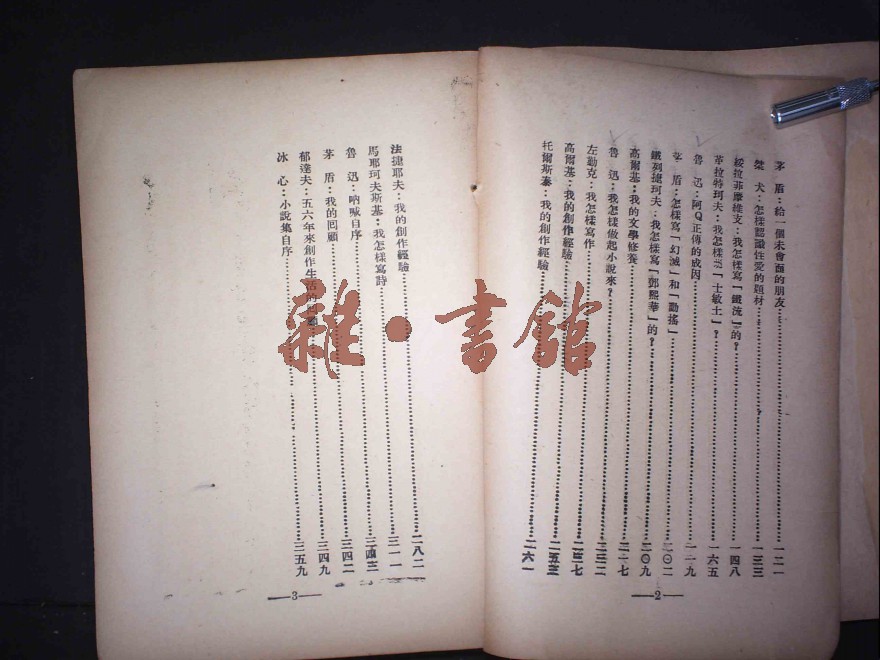 茅盾：給一個未會面的朋友……一二一
桀犬：怎樣認識性愛的題材……一三三
綏拉菲摩維支：我怎樣寫「鐵流」的？……一四八
革拉特珂夫：我怎樣寫「士敏土」？……一六五
魯迅：阿Q正傳的成因……一九
茅盾：怎樣寫「幻滅」和「動搖」……二〇二
鐵列捷珂夫：我怎樣寫「鄧熙華」的？……二〇九
高爾基：我的文學修養……二一七
魯迅：我怎樣做起小說來？……二三二
左勤克：我怎樣寫作……二三七
高爾基：我的創作經驗……二五三
托爾斯泰：我的創作經驗……二六一
—2—
法捷耶夫：我的創作經驗……二八二
馬耶珂夫斯基：我怎樣寫詩……三一一
魯迅：吶喊自序……三三
茅盾：我的回顧……三四二
郁達夫：五六年來創作生活的回顧……三四九
冰心：小說集自序……三五九
—3—
雜·書館